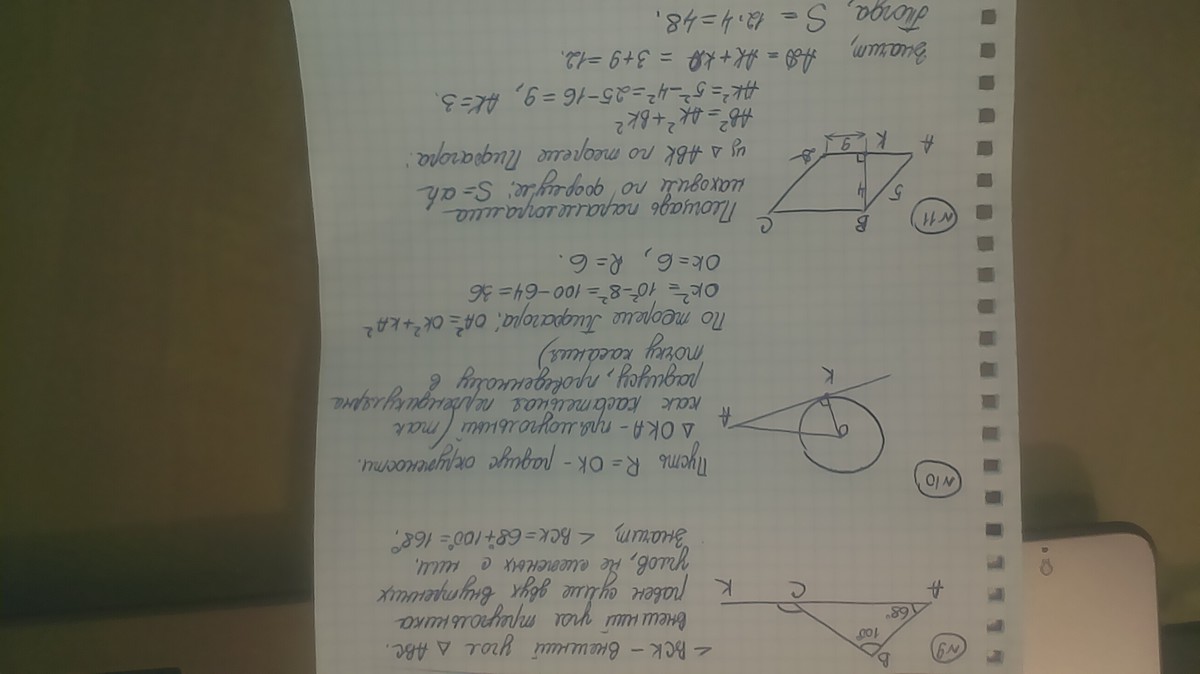 №9
B
100°
68°
A
C
K
∠BCK - внешний угол △ ABC.
Внешний угол треугольника
равен сумме двух внутренних
углов, не смежных с ним.
Значит, ∠BCK = 68°+100° = 168°.
№10
A
K
O
Пусть R = OK - радиус окружности.
△ OKA - прямоугольный (так
как касательная перпендикулярна
радиусу, проведенному в
точку касания)
По теореме Пифагора: OA² = OK² + KA²
OK² = 10²-8² = 100-64 = 36
OK = 6, R = 6.
№11
B
C
5
4
A
K
9
D
Площадь паралелограмма
находим по формуле: S = ah
из △ ABK по теореме Пифагора:
AB² = AK² + BK²
AK² = 5²-4² = 25-16 = 9, AK = 3.
Значит, AD = AK + KD = 3+9 = 12.
Тогда, S = 12·4 = 48.